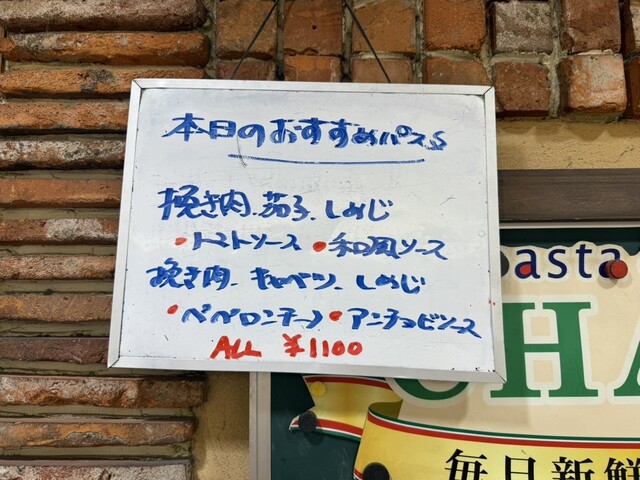 本日のおすすめパスタ
挽き肉、茄子、しめじ
・トマトソース ・和風ソース
挽き肉、キャベツ、しめじ
・ペペロンチーノ ・アンチョビソース
ALL ¥1100
pasta
CHA
毎日新鮮